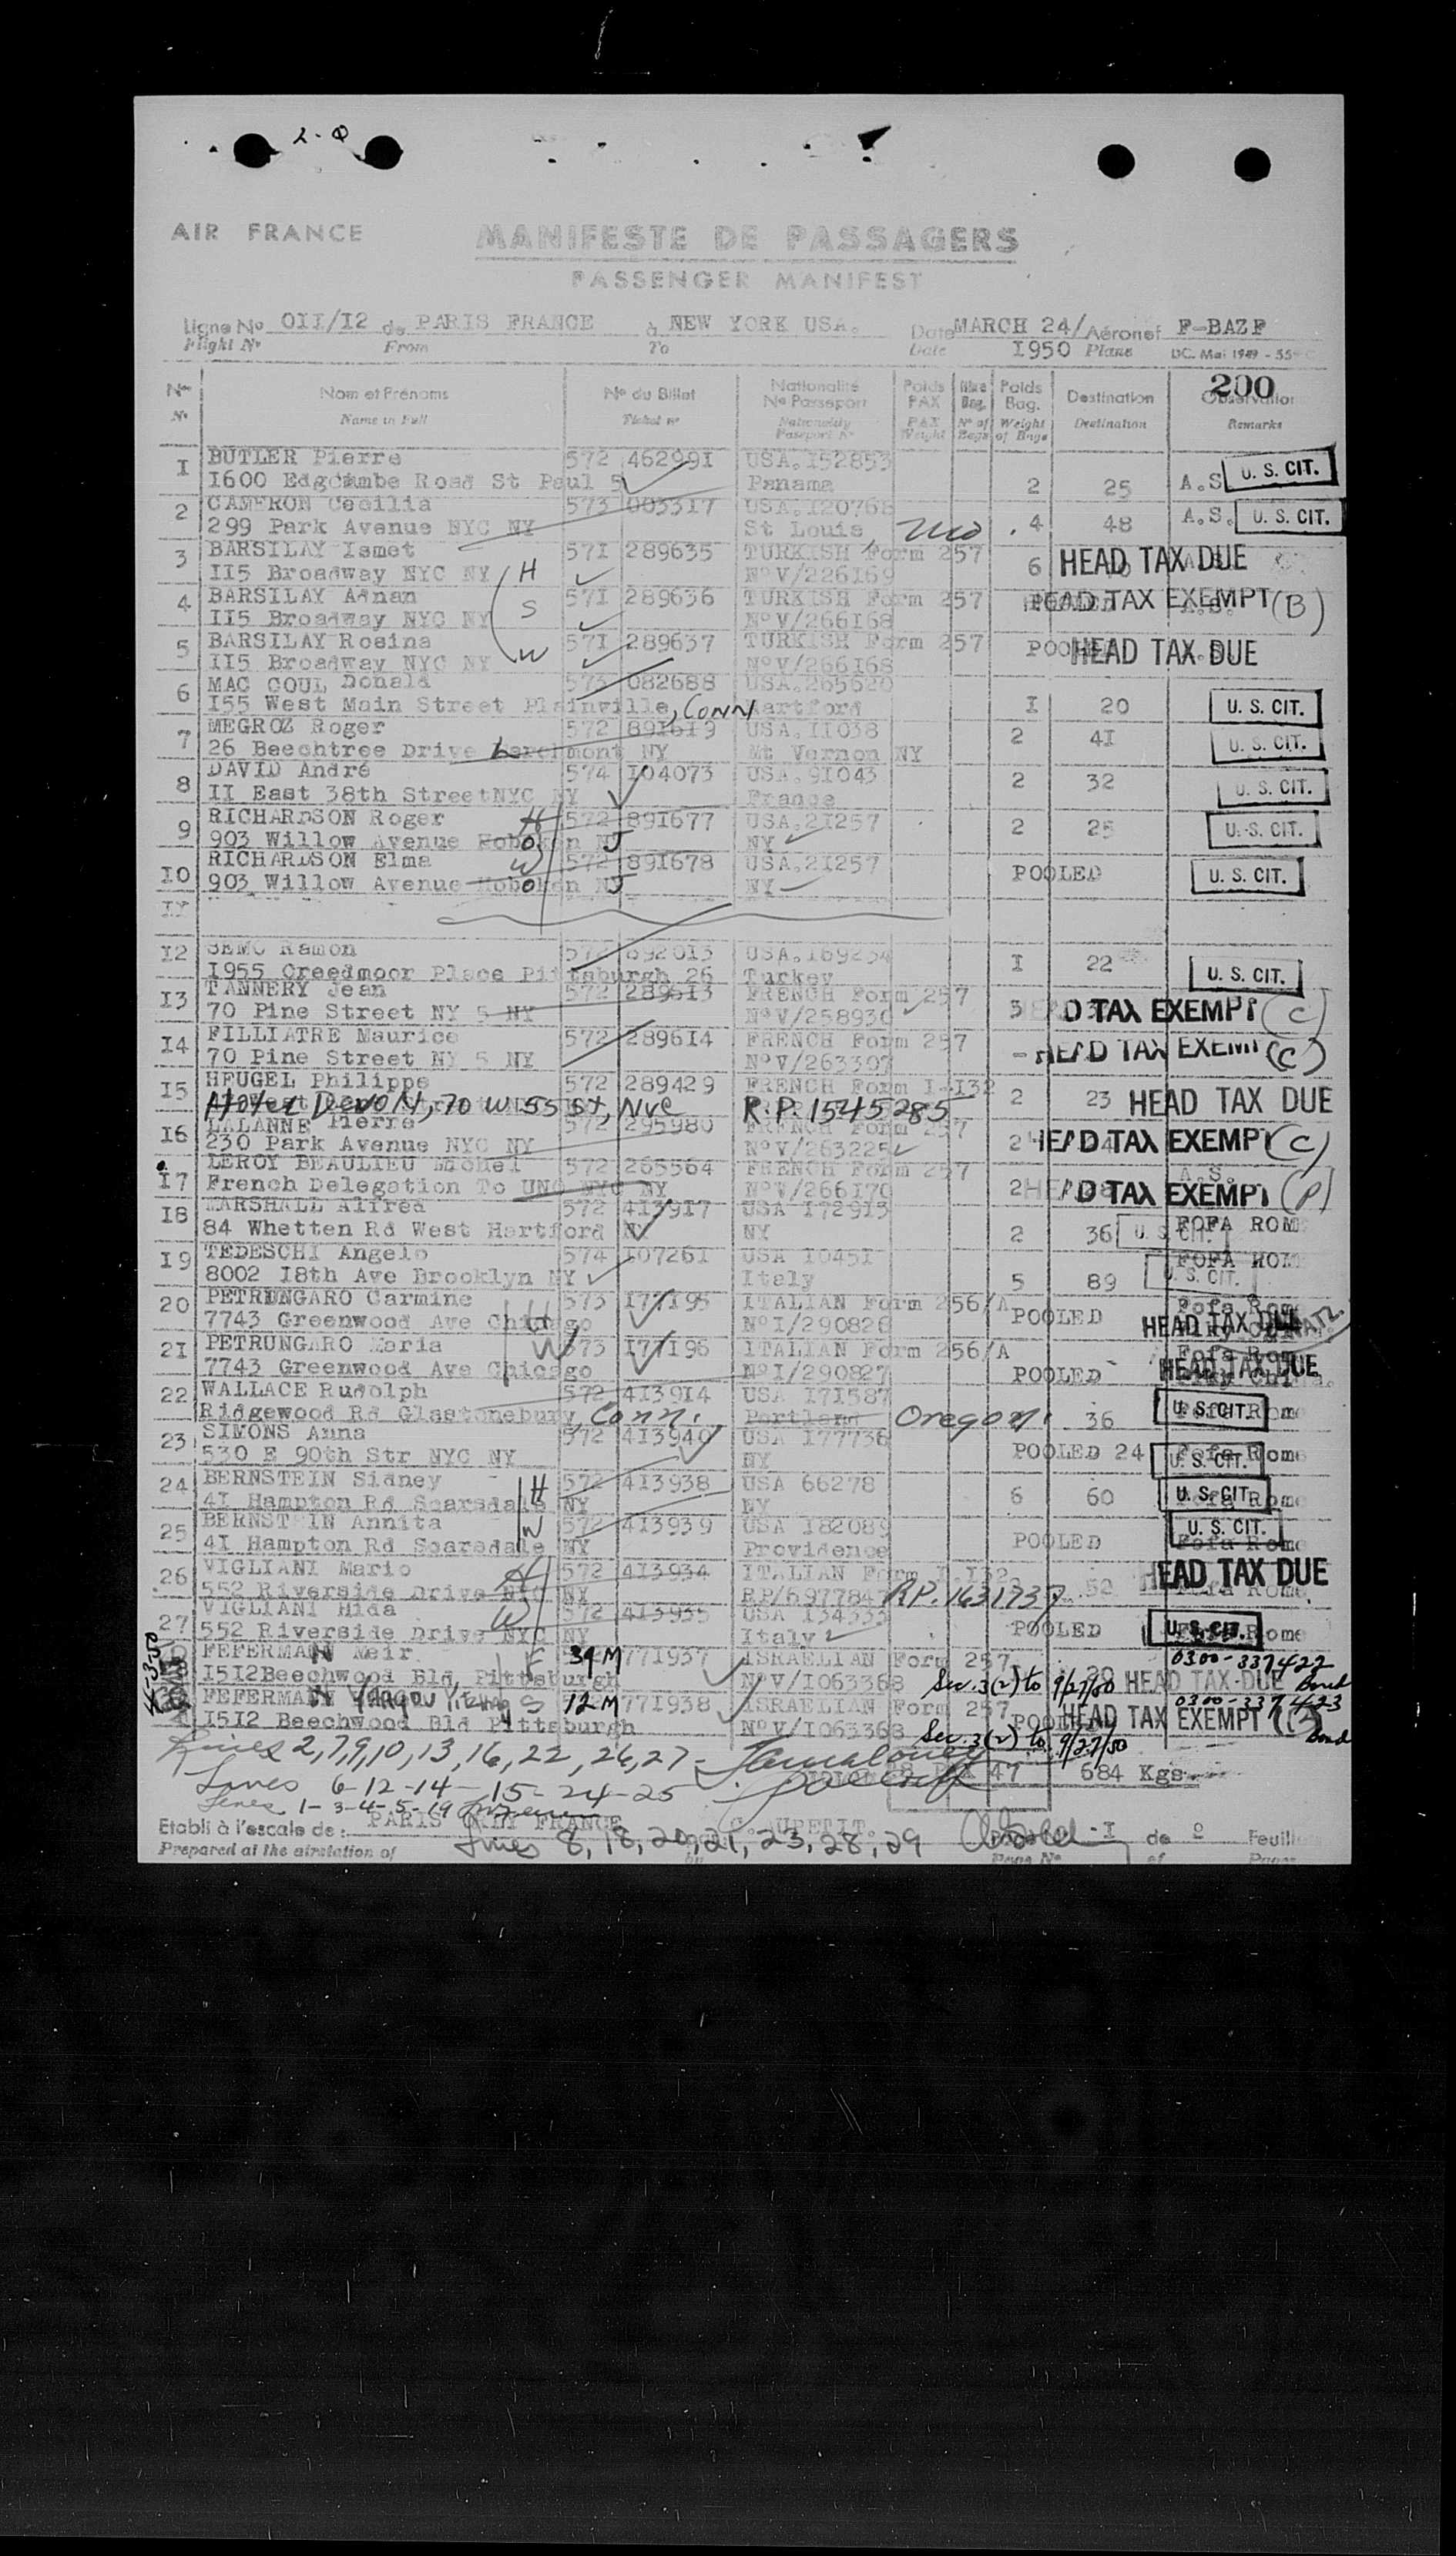 2-0
AIR FRANCE
MANIFESTE DE PASSAGERS
PASSENGER MANIFEST
Ligne No OII/I2 de PARIS FRANCE à NEW YORK USA. Date MARCH 24/ Aéronef F-BAZF
Flight No From To Date I950 Plane DC. Mai 1949 - 55
Nos Nom et Prénoms No du Billet Nationalité No Passeport Poids PAX Nbre Bag. Poids Bag. Destination 200 Observations
No Name in Full Ticket No Nationality Passport No PAX Weight No of Bags Weight of Bags Destination Remarks
I BUTLER Pierre 572 46299I USA.I52853
I600 Edgcumbe Road St Paul 5 Panama 2 25 A.S. U. S. CIT.
2 CAMERON Cecilia 573 0033I7 USA.I20768
299 Park Avenue NYC NY St Louis, Mo 4 48 A.S. U. S. CIT.
3 BARSILAY Ismet 57I 289635 TURKISH Form 257
II5 Broadway NYC NY H NoV/226I69 6 HEAD TAX DUE
4 BARSILAY Adnan 57I 289636 TURKISH Form 257 HEAD TAX EXEMPT (B)
II5 Broadway NYC NY S NoV/266I68
5 BARSILAY Rosina 57I 289637 TURKISH Form 257 POOLED HEAD TAX DUE
II5 Broadway NYC NY W NoV/266I68
6 MAC COUL Donald 573 082688 USA.265620
I55 West Main Street Plainville, CONN Hartford I 20 U. S. CIT.
7 MEGROZ Roger 572 89I6I9 USA.II038
26 Beechtree Drive Larchmont NY Mt Vernon NY 2 4I U. S. CIT.
8 DAVID André 574 I04073 USA.9I043
II East 38th StreetNYC NY France 2 32 U. S. CIT.
9 RICHARDSON Roger H 572 89I677 USA.2I257
903 Willow Avenue Hoboken NJ NY 2 25 U. S. CIT.
I0 RICHARDSON Elma W 572 89I678 USA.2I257
903 Willow Avenue Hoboken NJ NY POOLED U. S. CIT.
I2 SEMO Ramon 572 8920I3 USA.I69254
I955 Creedmoor Place Pittsburgh 26 Turkey I 22 U. S. CIT.
I3 TANNERY Jean 572 2896I3 FRENCH Form 257
70 Pine Street NY 5 NY NoV/258930 3 HEAD TAX EXEMPT (C)
I4 FILLIATRE Maurice 572 2896I4 FRENCH Form 257
70 Pine Street NY 5 NY NoV/263397 - HEAD TAX EXEMPT (C)
I5 HEUGEL Philippe 572 289429 FRENCH Form I-I32
Hotel Devon, 70 W 55 St, NYC R.P. 1545285 2 23 HEAD TAX DUE
I6 LALANNE Pierre 572 295980 FRENCH Form 257
230 Park Avenue NYC NY NoV/263225 2 HEAD TAX EXEMPT (C)
I7 LEROY BEAULIEU Michel 572 265564 FRENCH Form 257 A.S.
French Delegation To UNO NYC NY NoV/266I70 2 HEAD TAX EXEMPT (P)
I8 MARSHALL Alfred 572 4I39I7 USA I729I3
84 Whetten Rd West Hartford NY NY 2 36 U. S. CIT. FOFA ROME
I9 TEDESCHI Angelo 574 I0726I USA I045I FOFA ROME
8002 I8th Ave Brooklyn NY Italy 5 89 U. S. CIT.
20 PETRUNGARO Carmine H 573 I77I95 ITALIAN Form 256/A Fofa Rome
7743 Greenwood Ave Chicago NoI/290826 POOLED HEAD TAX DUE
2I PETRUNGARO Maria W 573 I77I96 ITALIAN Form 256/A Fofa Rome
7743 Greenwood Ave Chicago NoI/290827 POOLED HEAD TAX DUE
22 WALLACE Rudolph 572 4I39I4 USA I7I587
Ridgewood Rd Glastonebury, Conn. Portland Oregon. 36 U. S. CIT. Fofa Rome
23 SIMONS Anna 572 4I3940 USA I77736
530 E 90th Str NYC NY NY POOLED 24 U. S. CIT. Fofa Rome
24 BERNSTEIN Sidney H 572 4I3938 USA 66278
4I Hampton Rd Scarsdale NY NY 6 60 U. S. CIT. Fofa Rome
25 BERNSTEIN Annita W 572 4I3939 USA I82089
4I Hampton Rd Scarsdale NY Providence POOLED U. S. CIT. Fofa Rome
26 VIGLIANI Mario H 572 4I3934 ITALIAN Form I.I32
552 Riverside Drive NYC NY RP/697784 R.P. 1631737 52 HEAD TAX DUE Fofa Rome
27 VIGLIANI Hida W 572 4I3935 USA I34333
552 Riverside Drive NYC NY Italy POOLED U. S. CIT. Fofa Rome
FEFERMAN Meir F 39M 77I937 ISRAELIAN Form 257 0300-337422
I5I2Beechwood Bld, Pittsburgh NoV/I063368 Sec. 3(2) to 9/27/50 HEAD TAX DUE Bond
FEFERMAN Yitzhaq S 12M 77I938 ISRAELIAN Form 257 0300-337423
I5I2 Beechwood Bld Pittsburgh NoV/I063368 Sec. 3(2) to 9/27/50 POOLED HEAD TAX EXEMPT Bond
Lines 2,7,9,10,13,16,22,26,27-
Lines 6-12-14-15-24-25 47 684 Kgs
Lines 1-3-4-5-19
Etabli à l'escale de: PARIS ORLY FRANCE I de Feuille
Prepared at the airstation of Lines 8,18,20,21,23,28,29 Page No of Pages